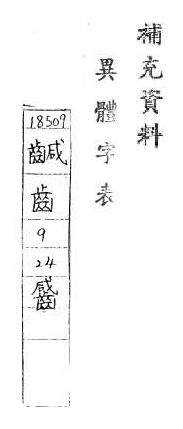 補充資料
異體字表
18509
齒
9
24